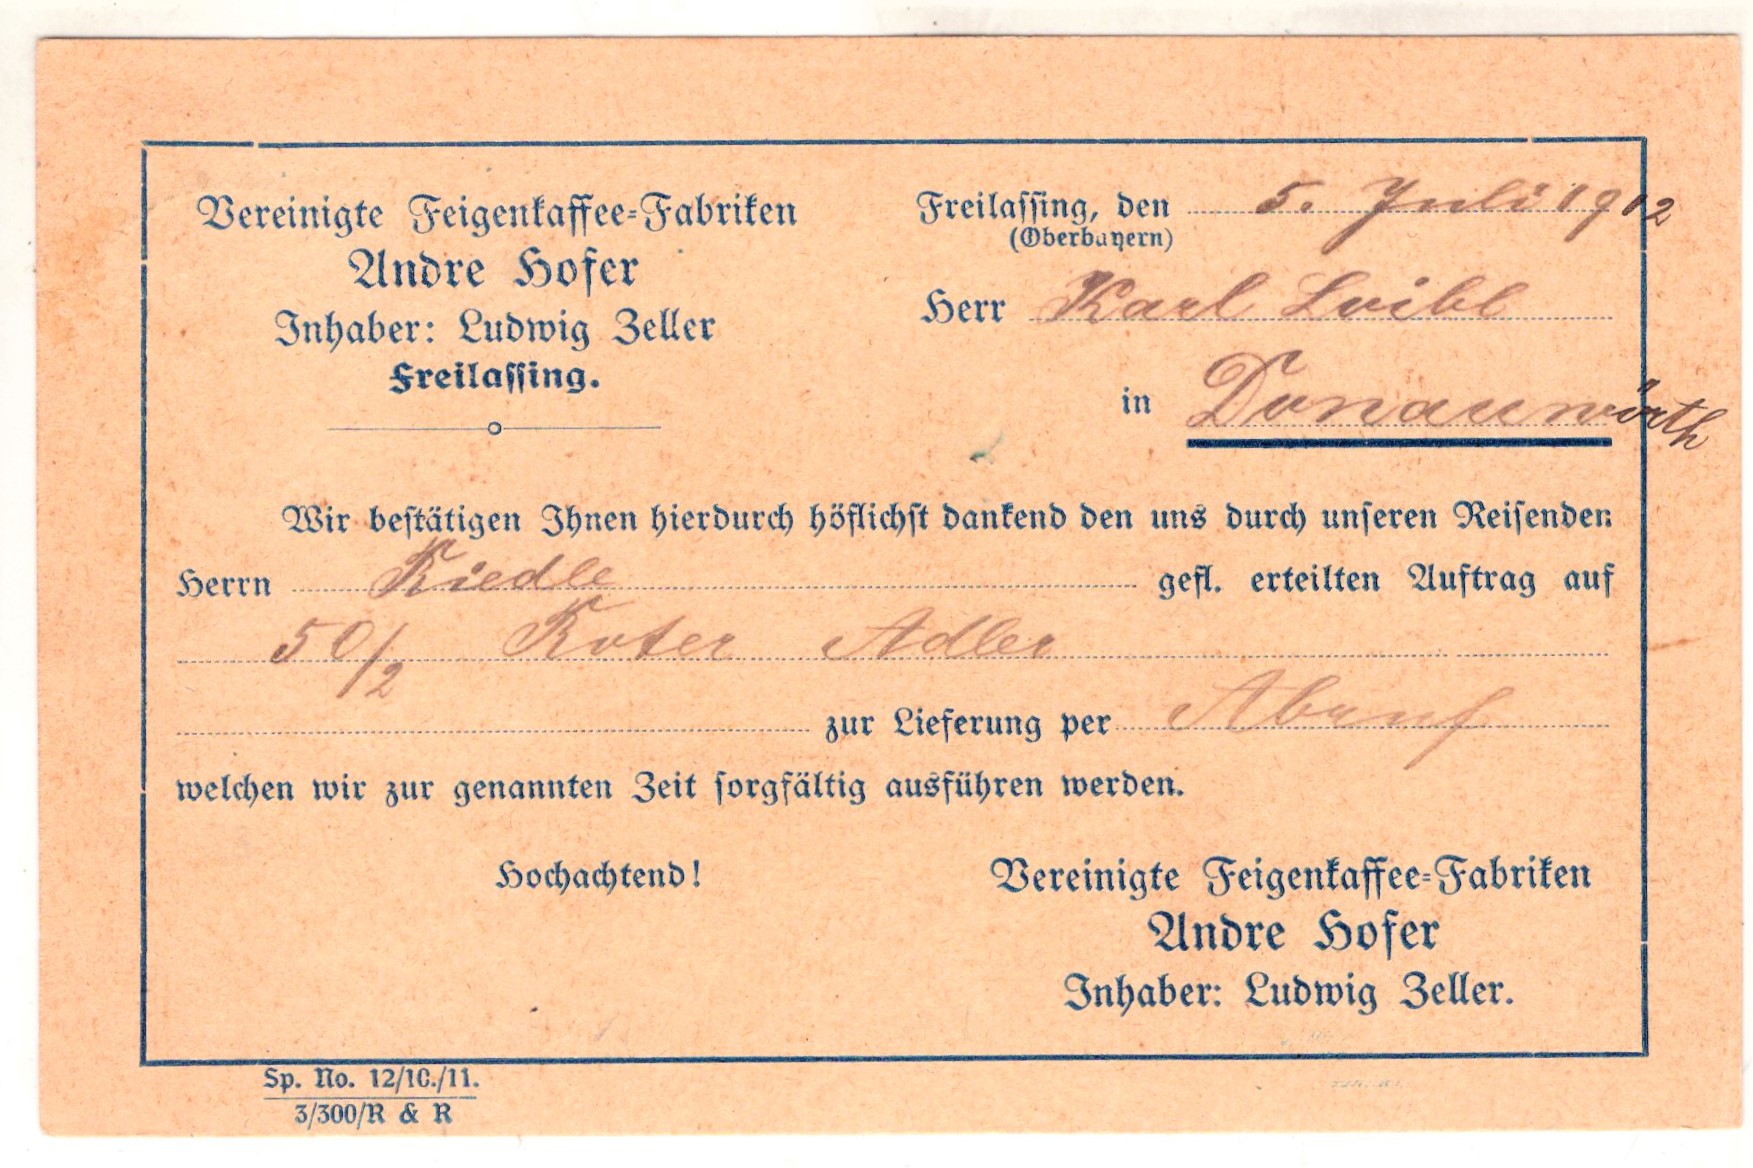 Vereinigte Feigenkaffee-Fabriken
Andre Hofer
Inhaber: Ludwig Zeller
Freilassing.
Freilassing, den 5. Juli 1912
(Oberbayern)
Herr Karl Loibl
in Donauwörth
Wir bestätigen Ihnen hierdurch höflichst dankend den uns durch unseren Reisenden
Herrn Riedle gefl. erteilten Auftrag auf
50/2 Roter Adler
zur Lieferung per Abruf
welchen wir zur genannten Zeit sorgfältig ausführen werden.
Hochachtend!
Vereinigte Feigenkaffee-Fabriken
Andre Hofer
Inhaber: Ludwig Zeller.
Sp. No. 12/10./11.
3/300/R & R